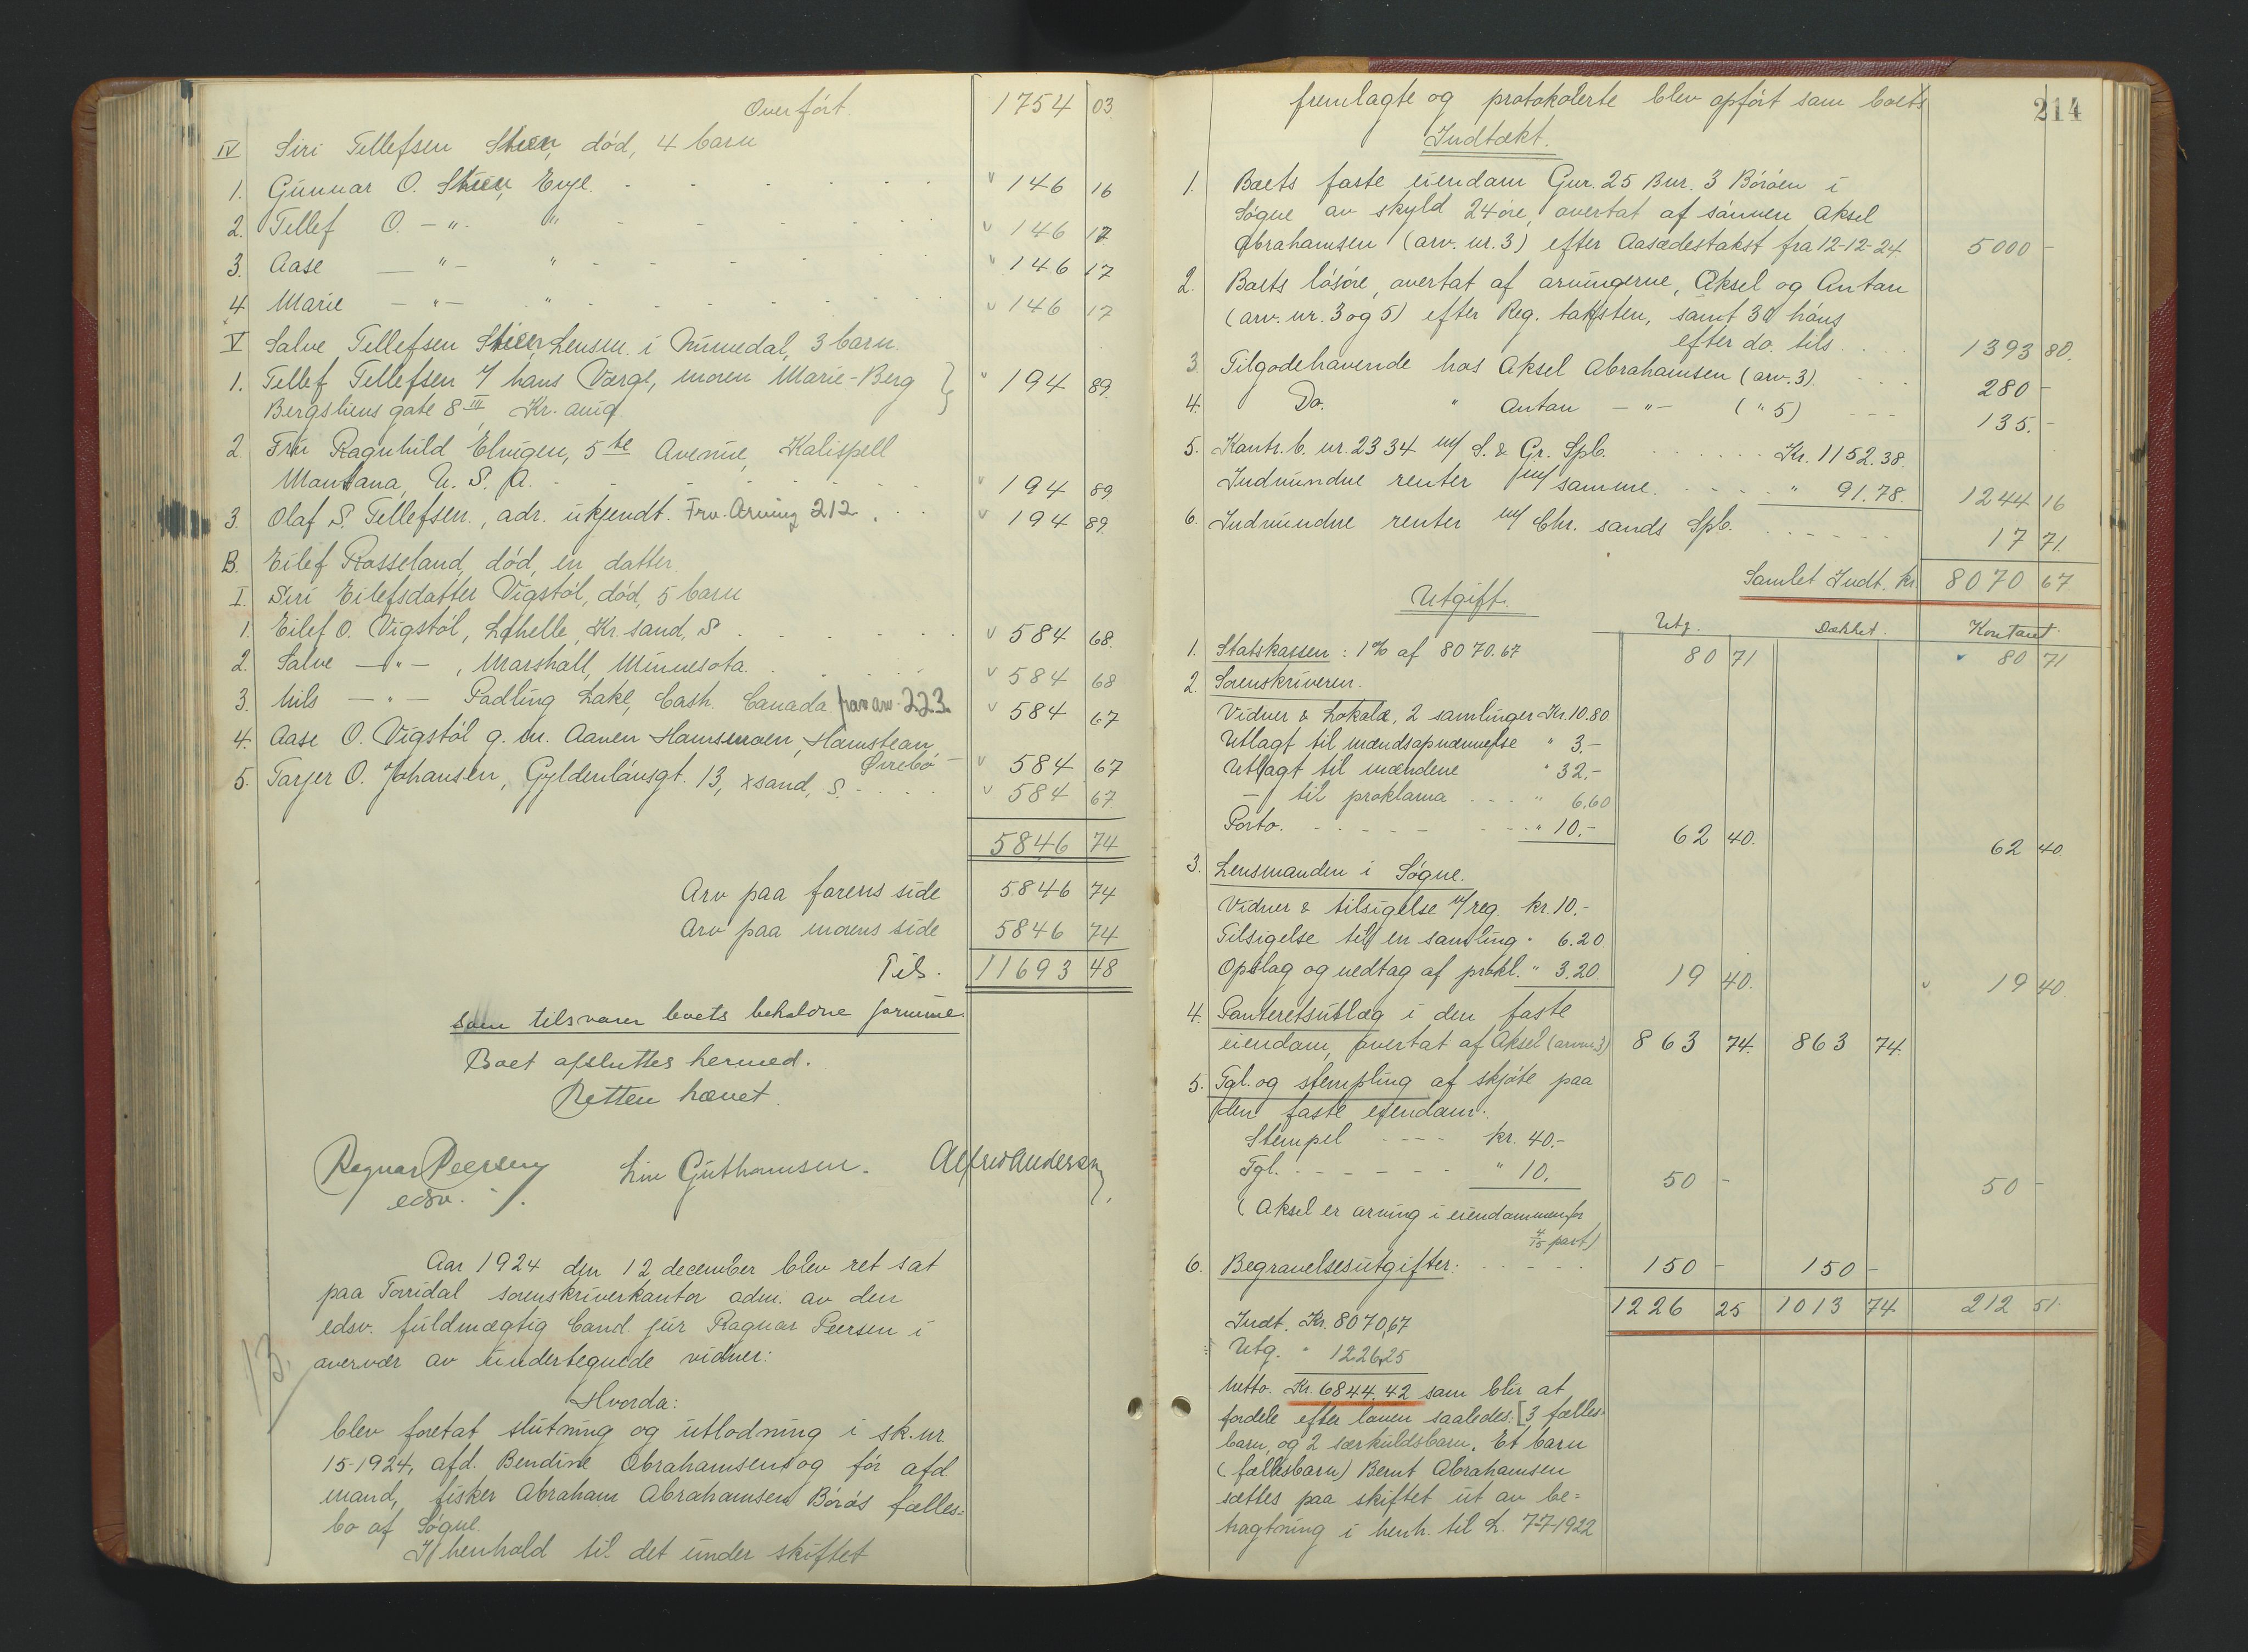 Overført. 1754 03
IV Siri Tellefsen Steen, død, 4 barn
1. Gunnar O. Steen, Evje. 146 16
2. Tellef O. — " — " 146 17
3. Aase — " — " 146 17
4 Marie — " — " 146 17
V Salve Tellefsen Steen, Lensm. i Numedal, 3 barn.
1. Tellef Tellefsen v/ hans Værge, moren Marie-Berg 194 89.
Bergsliens gate 8 III, Kr.ania.
2. Fru Ragnhild Elvigen, 5te Avenue, Kalispell
Montana, U. S. A. 194 89
3. Olaf S. Tellefsen, adr. ukjendt. Frv. Arving 212. 194 89.
B. Eilef Rosseland, død, en datter.
I. Siri Eilefsdatter Vigstøl, død, 5 barn
1. Eilef O. Vigstøl, Lahelle, Kr.sand, S. 584 68.
2. Salve — " — , Marshall, Minnesota. 584 68
3. Nils — " — Padling Lake, Cash. Canada 223. 584 67
4. Aase O. Vigstøl g. m. Aanen Homsmoen, Homstean,
Øvrebø — 584 67
5. Tarjer O. Johansen, Gyldenløusgt. 13, Xsand, S. 584 67
5846 74
Arv paa farens side 5846 74
Arv paa morens side 5846 74
Tils. 11693 48
som tilsvarer boets beholdne formue.
Boet afsluttes hermed.
Retten hævet.
Ragnar Peersen Guthomsen. Alfred Andersen
edsv.
Aar 1924 den 12 december blev ret sat
paa Torridal sorenskriverkontor adm. av den
edsv. fuldmægtig Cand. jur Ragnar Peersen i
overvær av undertegnede vidner:
13.
Hvorda:
blev foretat slutning og utlodning i sk.nr.
15-1924, afd. Bendine Abrahamsens og før afd
mand, fisker Abraham Abrahamsen Borøs fælles=
bo af Søgne.
I henhold til det under skiftet
214
fremlagte og protokolerte blev opført som boets
Indtækt.
1. Boets faste eiendom Gnr. 25 Bnr. 3 Borøen i
Søgne av skyld 24 øre, overtat af sønnen Aksel
Abrahamsen (arv. nr. 3) efter Aasædestakst fra 12-12-24. 5000 -
2. Boets løsøre, overtat af arvingerne, Aksel og Anton
(arv. nr. 3 og 5) efter Reg. taksten, samt 30 høns
efter do. tils. 1393 80.
3. Tilgodehavende hos Aksel Abrahamsen (arv. 3). 280 -
4. Do. " Anton — " — ( " 5) 135. -
5. Kontr.b. nr. 2334 m/ S. & Gr. Spb. Kr. 1152.38.
Indvundne renter m/ samme. " 91.78. 1244 16
6. Indvundne renter m/ Chr.sands Spb. 17 71.
Samlet Indt. kr. 8070 67
Utgift.
Utg. Dækket. Kontant.
1. Statskassen: 1% af 8070.67 80 71 80 71
2. Sorenskriveren.
Vidner & Lokale, 2 samlinger Kr. 10.80
Utlagt til mændsopnævnelse " 3.-
Utlagt til mændene " 32.-
— til proklama " 6.60
Porto. " 10.- 62 40. 62 40
3. Lensmanden i Søgne.
Vidner & tilsigelse v/ reg. kr. 10.-
Tilsigelse til en samling " 6.20.
Opslag og nedtag af prokl. " 3.20. 19 40. 19 40
4. Panteretsutlæg i den faste
eiendom, overtat af Aksel (arv nr. 3) 863 74. 863 74.
5. Tgl. og stempling af skjøte paa
den faste eiendom.
Stempel kr. 40.-
Tgl. " 10. 50 - 50 -
(Aksel er arving i eiendommen for
4/15 part)
6. Begravelsesutgifter: 150 - 150 -
1226 25 1013 74 212 51
Indt. Kr. 8070,67
Utg. " 1226,25
Netto. Kr. 6844.42 som blir at
fordele efter loven saaledes: [3 fælles-
barn, og 2 særkuldsbarn. Et barn
(fællesbarn) Bernt Abrahamsen
sættes paa skiftet ut av be=
tragtning i henh. til L. 7-7-1922